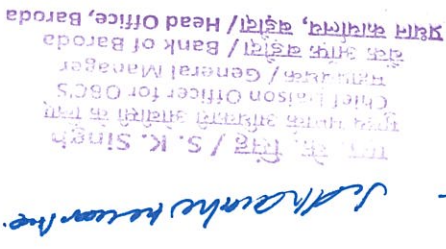 एस. के. सिंह / S. K. Singh
मुख्य सम्पर्क अधिकारी ओबीसी के लिए
Chief Liaison Officer for OBC'S
महाप्रबंधक / General Manager
बैंक ऑफ़ बड़ौदा / Bank of Baroda
प्रधान कार्यालय, बड़ौदा / Head Office, Baroda